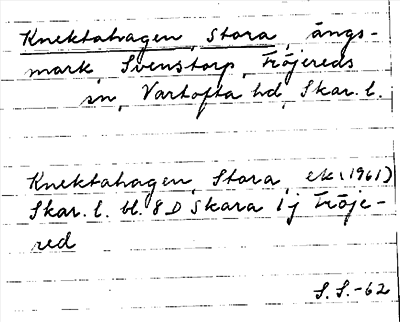 Knektahagen, Stora, ängs-
mark, Svenstorp, Fröjereds
sn, Vartofta hd, Skar. l.
Knektahagen, Stora, ek (1961)
Skar. l. bl. 8 D Skara 1 j Fröje-
red
S. S. -62